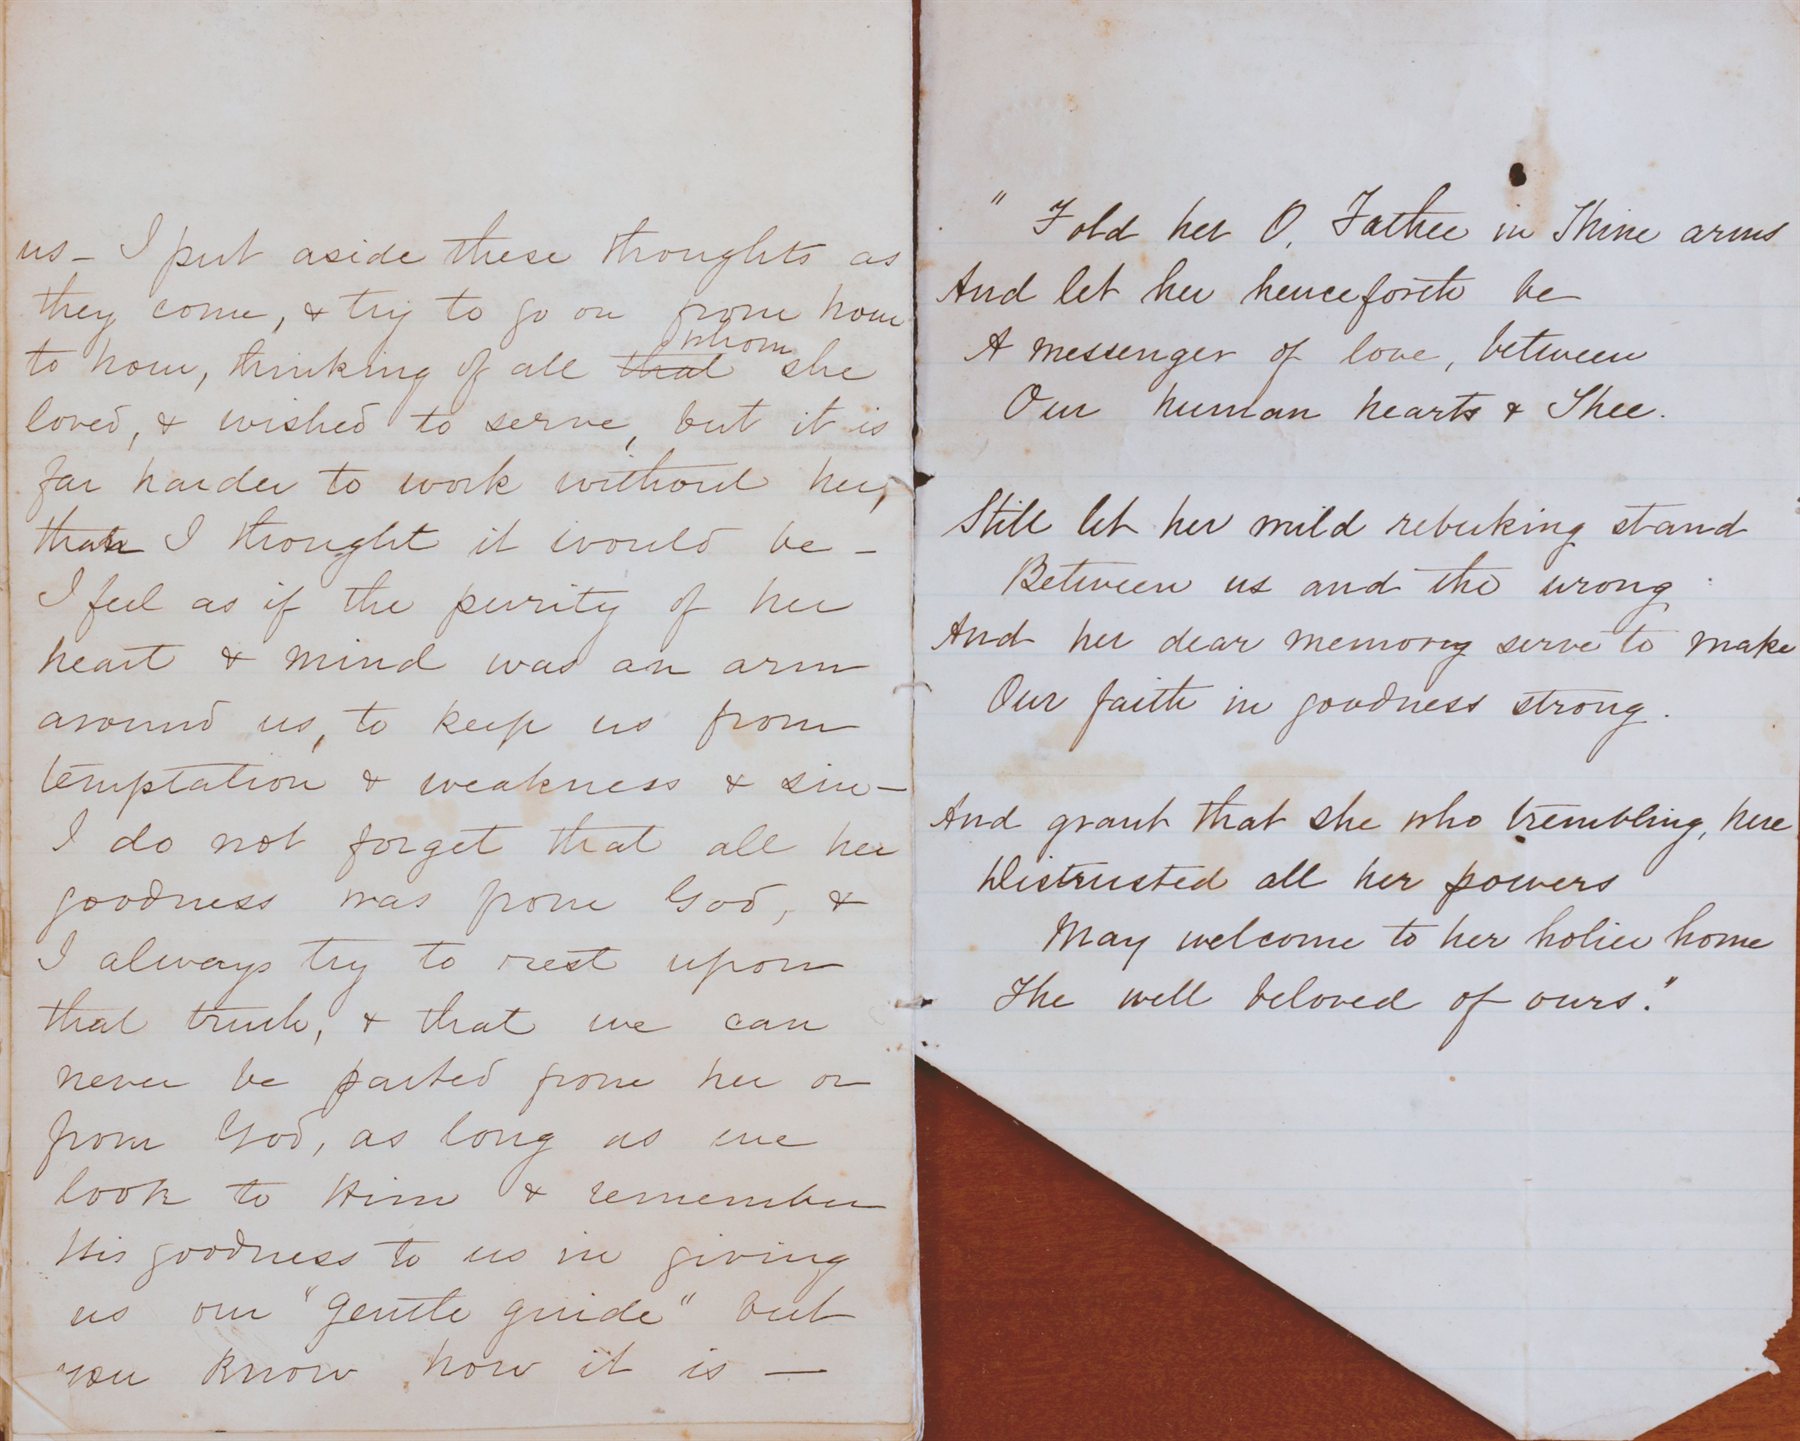 us – I put aside these thoughts as
they come, & try to go on from hour
to hour, thinking of all that whom she
loved, & wished to serve, but it is
far harder to work without her,
than I thought it would be –
I feel as if the purity of her
heart & mind was an arm
around us, to keep us from
temptation & weakness & sin –
I do not forget that all her
goodness was from God, &
I always try to rest upon
that truth, & that we can
never be parted from her or
from God, as long as we
look to Him & remember
His goodness to us in giving
us our "gentle guide" but
you know how it is –
"Fold her O, Father in Thine arms
And let her henceforth be
A messenger of love, between
Our human hearts & Thee.
Still let her mild rebuking stand
Between us and the wrong
And her dear memory serve to make
Our faith in goodness strong.
And grant that she who trembling, here
Distrusted all her powers
May welcome to her holier home
The well beloved of ours."